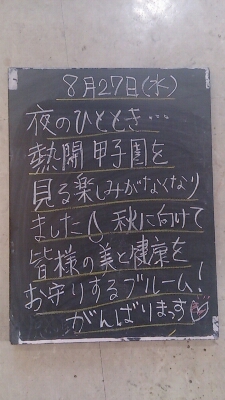 8月27日(水)
夜のひととき…
熱闘甲子園を
見る楽しみがなくなり
ました💧 秋に向けて
皆様の美と健康を
お守りするブルーム!
がんばりまっす